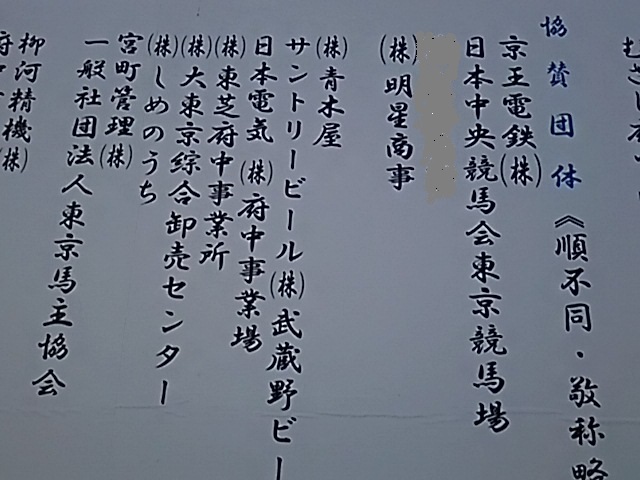 協賛団体《順不同・敬称略
京王電鉄(株)
日本中央競馬会東京競馬場
(株)明星商事
(株)青木屋
サントリービール(株)武蔵野ビー
日本電気(株)府中事業場
(株)東芝府中事業所
(株)大東京綜合卸売センター
(株)しめのうち
宮町管理(株)
一般社団法人東京馬主協会
柳河精機(株)